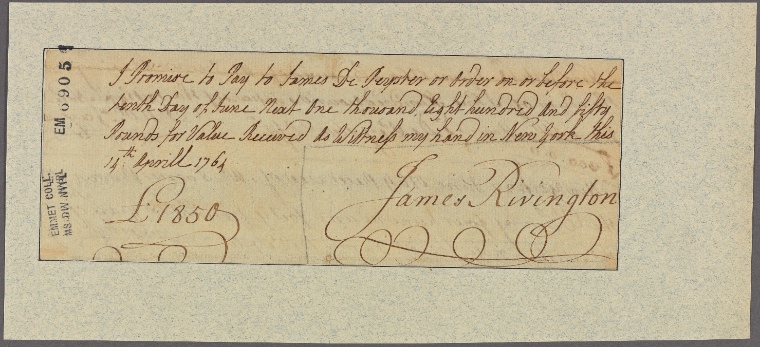 I Promise to Pay to James De Peyster or order on or before the
tenth Day of June Next One thousand Eight hundred and fifty
Pounds for Value Received as Witness my hand in New York this
14th Aprill 1764
£1850
James Rivington
EM 6905
EMMET COLL.
MS. DIV. NYPL